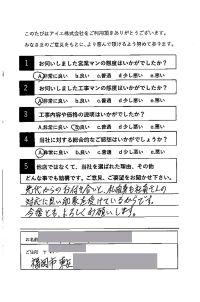 このたびはアイエ株式会社をご利用頂きありがとうございます。
みなさまのご意見をもとに、より喜んで頂けるよう努めて参ります。
1 お伺いしました営業マンの態度はいかがでしたか？
A.非常に良い b.良い c.普通 d.少し悪い e.悪い
2 お伺いしました工事マンの態度はいかがでしたか？
A.非常に良い b.良い c.普通 d.少し悪い e.悪い
3 工事内容や価格の説明はいかがでしたか？
A.非常に良い b.良い c.普通 d.少し悪い e.悪い
4 当社に対する総合的なご感想はいかがでしょうか？
A.良い b.良い c.普通 d.少し悪い e.悪い
5 他店ではなくて、当社を選ばれた理由、その他
どんな事でも結構です。ご意見、ご要望をお聞かせ下さい。
先代からのお付き合いと、
対応に良い印象を受けているからです。
今後とも、よろしくお願いします。
お名前
ご住所
福岡市東区